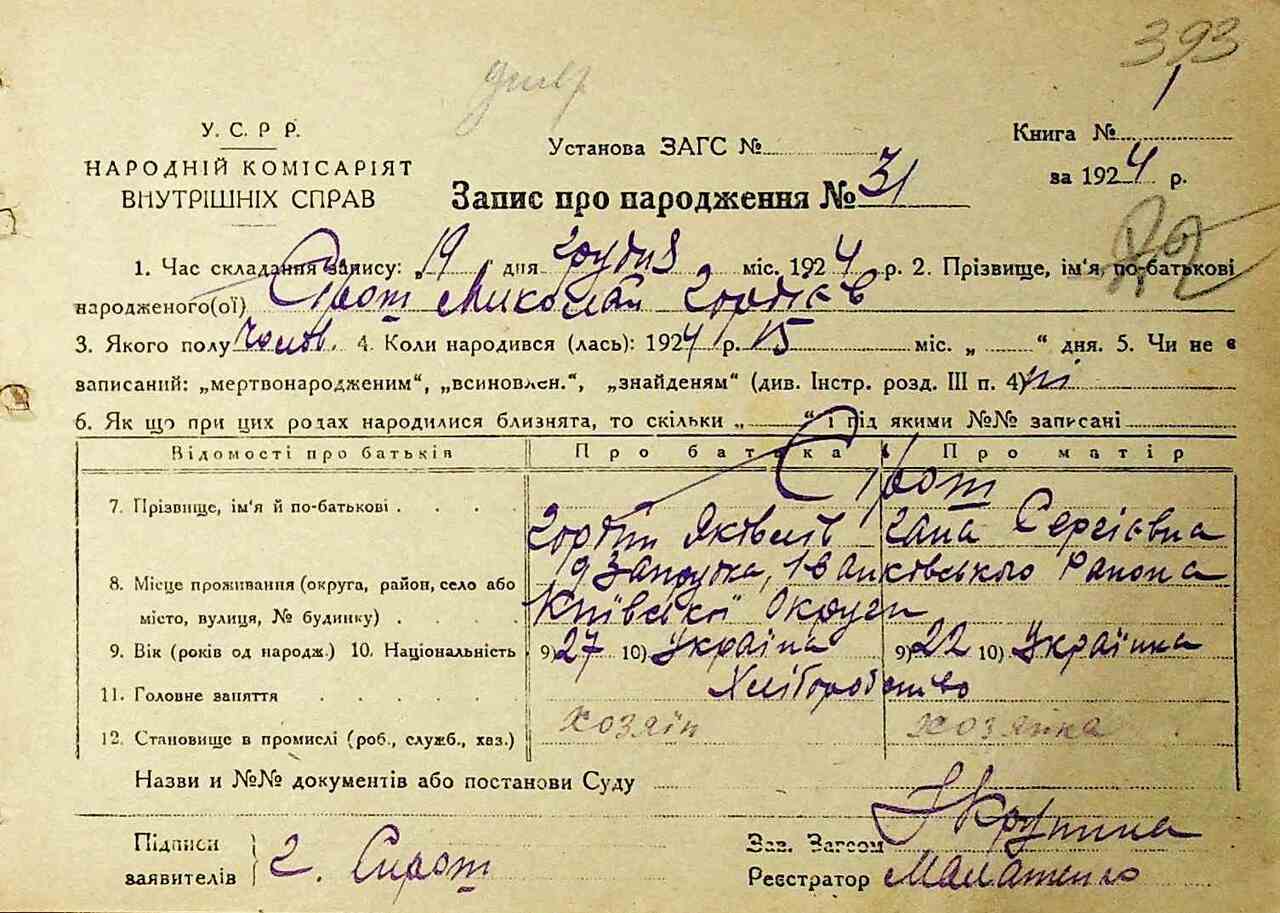 393
1
У. С. Р Р.
НАРОДНІЙ КОМІСАРІЯТ
ВНУТРІШНІХ СПРАВ
Установа ЗАГС №
Книга №
за 1924 р.
Запис про народження № 31
1. Час складання запису: „19 “ дня грудня міс. 1924 р. 2. Прізвище, ім'я, по-батькові
народженого(ої) Сірот Миколай Гордієв
3. Якого полу чолов. 4. Коли народився (лась): 1924 р. 15 міс. „ “ дня. 5. Чи не є
записаний: „мертвонародженим“, „всиновлен.“, „знайденям“ (див. Інстр. розд. III п. 4) ні
6. Як що при цих родах народилися близнята, то скільки „ “ і під якими №№ записані
Відомості про батьків Про батька Про матір
Сірот
7. Прізвище, ім'я й по-батькові
Гордій Яковлів Гана Сергієвна
8. Місце проживання (округа, район, село або
місто, вулиця, № будинку)
Района
Київської Округи
9. Вік (років од народж.) 10. Національність 9) 27 10) Україна 9) 22 10) Українка
11. Головне заняття Хліборобство
12. Становище в промислі (роб., служб., хаз.) хозяін хозяйка
Назви и №№ документів або постанови Суду
Підписи
заявителів
Г. Сирот
Зав. Загсом
Реєстратор